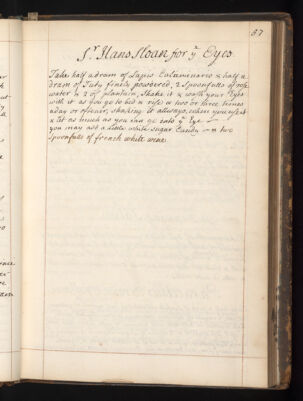 87
Sr. Hans Sloan for ye Eyes
Take half a dram of Lapis Calaminaris & half a
dram of Tuty finely powdered, 2 Spoonfulls of rose
water & 2 of plantain, Shake it & wash your Eyes
with it as you go to bed & rise & two or three times
a day or oftener, shaking it allways, when you use it
& let as much as you can go into ye Eye
you may add a little white Sugar Candy & two
Spoonfuls of french white wine